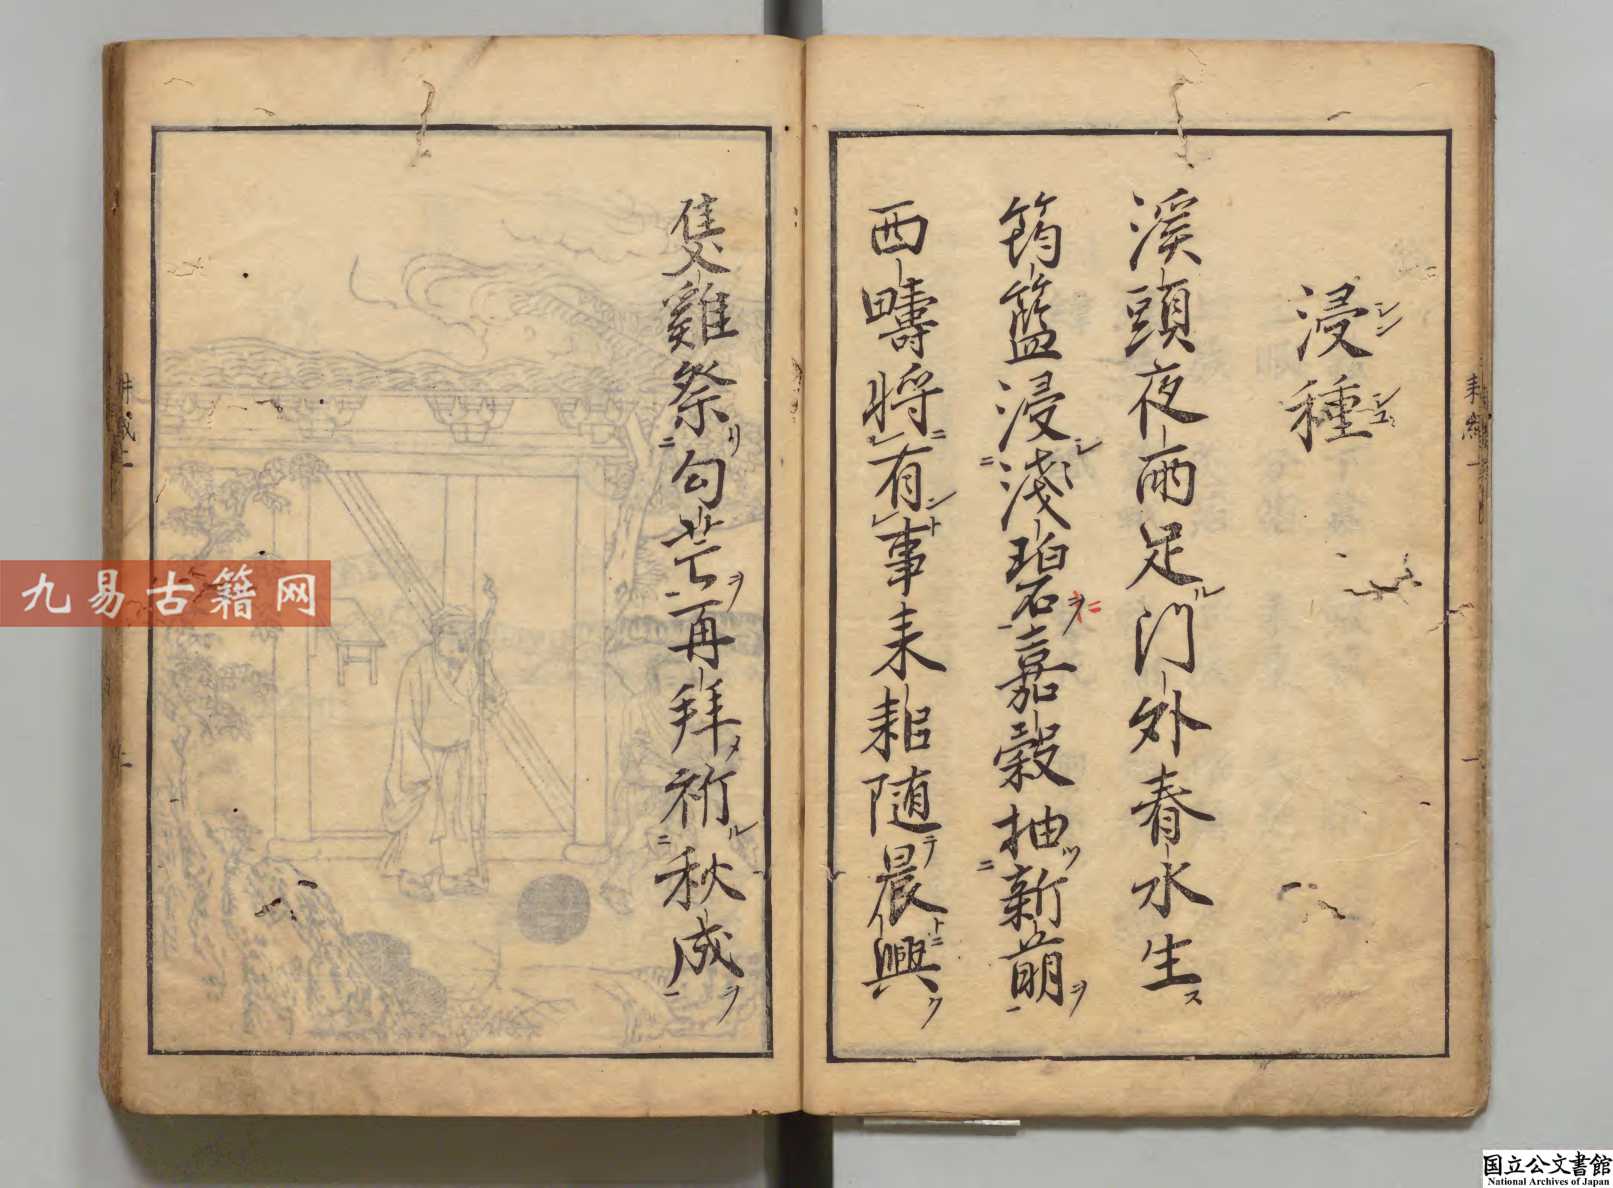 浸種
溪頭夜雨足門外春水生
筠籃浸淺碧嘉穀抽新萠
西疇將有事耒耜随晨興
隻雞祭勾芒再拜祈秋成
九易古籍网
国立公文書館
National Archives of Japan